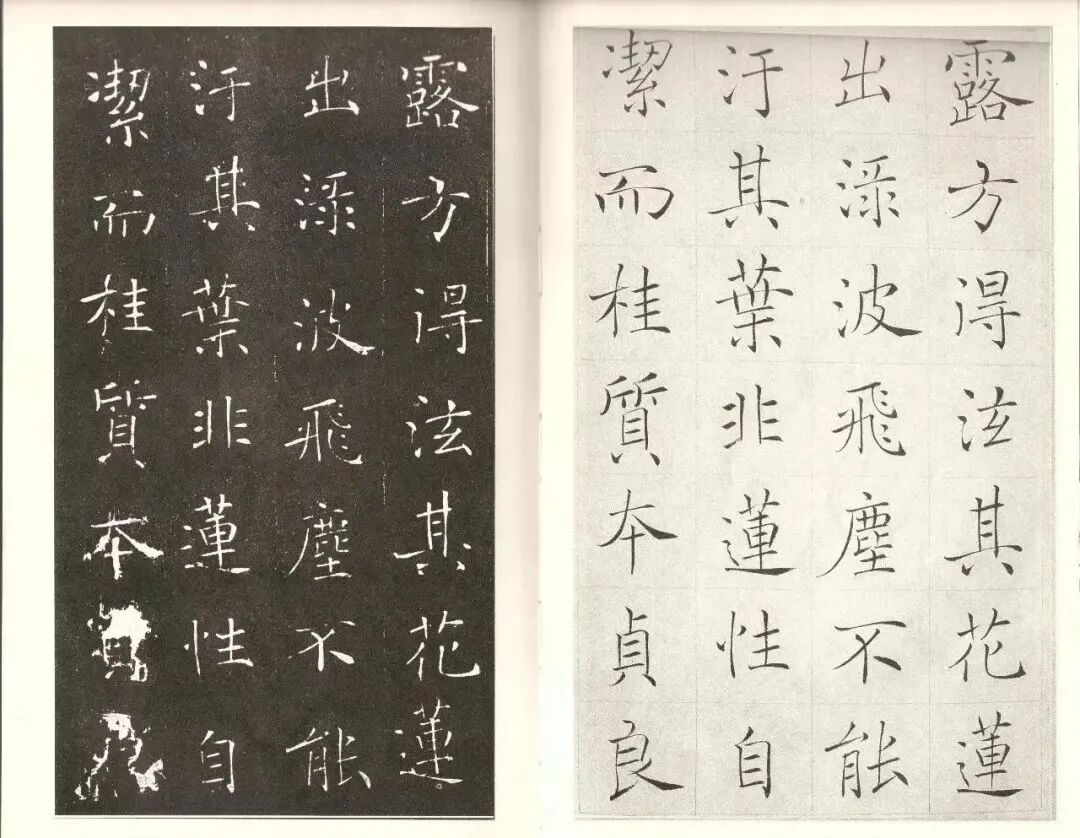 露方得泫其花蓮
出淥波飛塵不能
汙其葉非蓮性自
㓗而桂質本貞良
露方得泫其花蓮
出淥波飛塵不能
汙其葉非蓮性自
㓗而桂質本